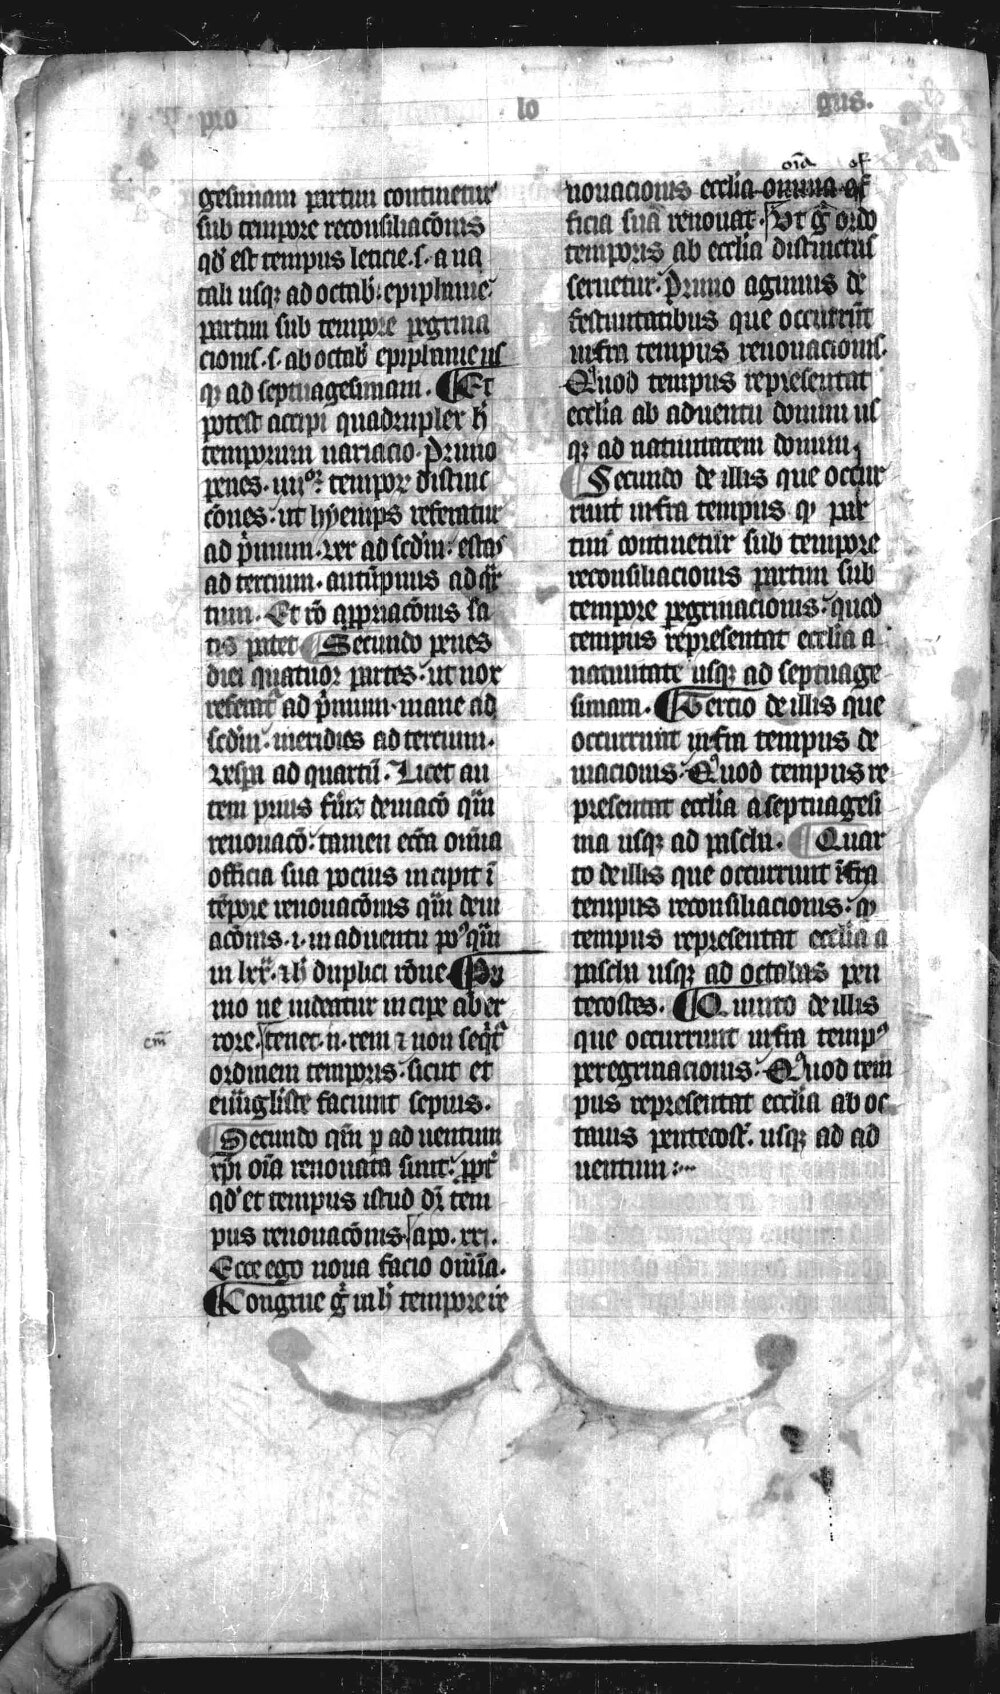 pro lo gus.
gesimam partim continetur
sub tempore reconsiliac̄onis
qd̓ est tempus leticie. s. a na
tali usqꝫ ad octab̓. epiphanie.
partim sub tempore pegrina
cionis. s. ab octab̓ epiphanie us
qꝫ ad septuagesimam. ¶ Et
potest accipi quadrupler h̓
temporum uariacio. Primo
penes. iiijoꝝ. tempoꝝ distinc
c̄ones. ut hyemps referatur
ad p̓mum. ver ad scd̓m. estas
ad tercium. autūpnus ad q̓r
tum. Et rō appriac̄onis sa
tis patet ¶ Secundo penes
diei quatuor partes. ut nox
referat̓ ad p̓mum. mane ad
scd̓m. meridies ad tercium.
vespa ad quartū. Licet au
tem prius fūit deuiacō qūm
renouacō. tamen eccīa om̄ia
officia sua pocius incipit ī
tēpore renouac̄onis qūm deui
ac̄onis. i. in aduentu po᷒ qūm
in lxx̄. ⁊ h̓ duplici rōne. ¶ Pri
mo ne uideatur incipe ab er
rore. tenet. n. rem ⁊ non seqt̓r
cm̄
ordinem temporis. sicut et
euūgliste faciunt sepius.
¶ Secundo qūm p ad uentum
xp̄i oīa renouata sunt. ppt̓
qd̓ et tempus istud dr̄ tem
pus renouac̄onis. apo. xxi.
Ecce ego noua facio om̄ia.
¶ Congrue g̓ in h̓ tempore re
oīa of
nouacionis ecclīa omnia of
ficia sua renouat. Vt g̓ ordo
temporis ab ecclīa distinctus
seruetur. Primo agimus de
festiuitatibus que occurrūt
infra tempus renouacionis.
Quod tempus representat
ecclīa ab aduentu domini us
qꝫ ad natiuitatem domini,
¶ Secundo de illis que occur
runt infra tempus qd̓ par
tim continetur sub tempore
reconsiliacionis partim sub
tempore pegrinacionis. quod
tempus representat ecclīa a
natiuitate usqꝫ ad septuage
simam. ¶ Tercio de illis que
occurrunt infra tempus de
uiacionis. Quod tempus re
presentat ecclīa a septuagesi
ma usqꝫ ad pascha. ¶ Quar
to de illis que occurrunt īfra
tempus reconsiliacionis. qd̓
tempus representat ecclīa a
pascha usqꝫ ad octabas pen
tecostes. ¶ Quinto de illis
que occurrunt infra temp᷒
peregrinacionis. Quod tem
pus representat ecclīa ab oc
tauis pentecost̓. usqꝫ ad ad
uentum